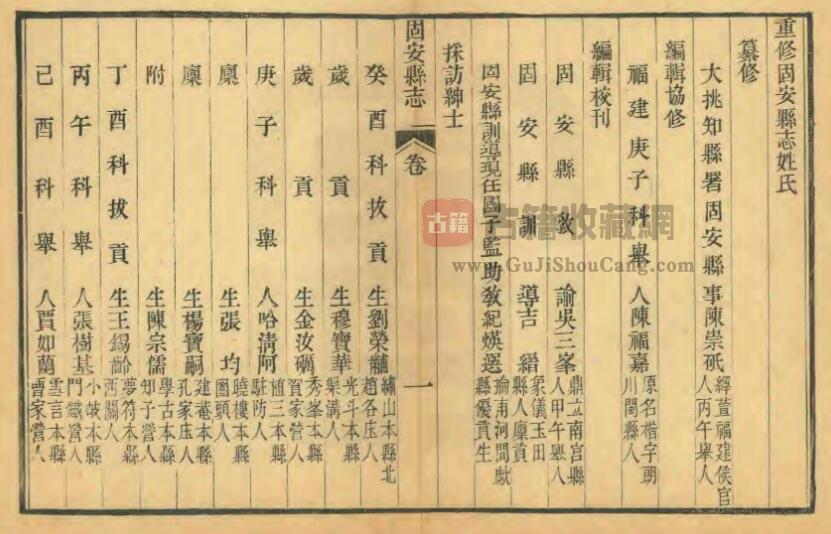 重修固安縣志姓氏
纂修
大挑知縣署固安縣事陳崇砥 繹萱福建侯官人丙午舉人
編輯協修
福建庚子科舉人陳福嘉 原名楷字朗川閩縣人
編輯校刊
固安縣教諭吳三峯 鼎立南宮縣人甲午舉人
固安縣訓導吉縉 象儀玉田縣人廩貢
固安縣訓導現任國子監助教紀煐選 瑜甫河間獻縣優貢生
採訪紳士
固安縣志 卷 一
癸酉科拔貢生劉榮黼 繡山本縣北趙各庄人
歲貢生穆寶華 光斗本縣渠溝人
歲貢生金汝礪 秀峯本縣賀家營人
庚子科舉人哈清阿 植三本縣駐防人
廩生張均 曉樓本縣圈頭人
廩生楊寶嗣 建菴本縣孔家庄人
附生陳宗儒 學古本縣知子營人
丁酉科拔貢生王錫齡 夢符本縣西關人
丙午科舉人張樹基 小岐本縣門鐵營人
己酉科舉人賈如蘭 雲言本縣曹家營人
古籍
古籍收藏網
www.GuJiShouCang.com